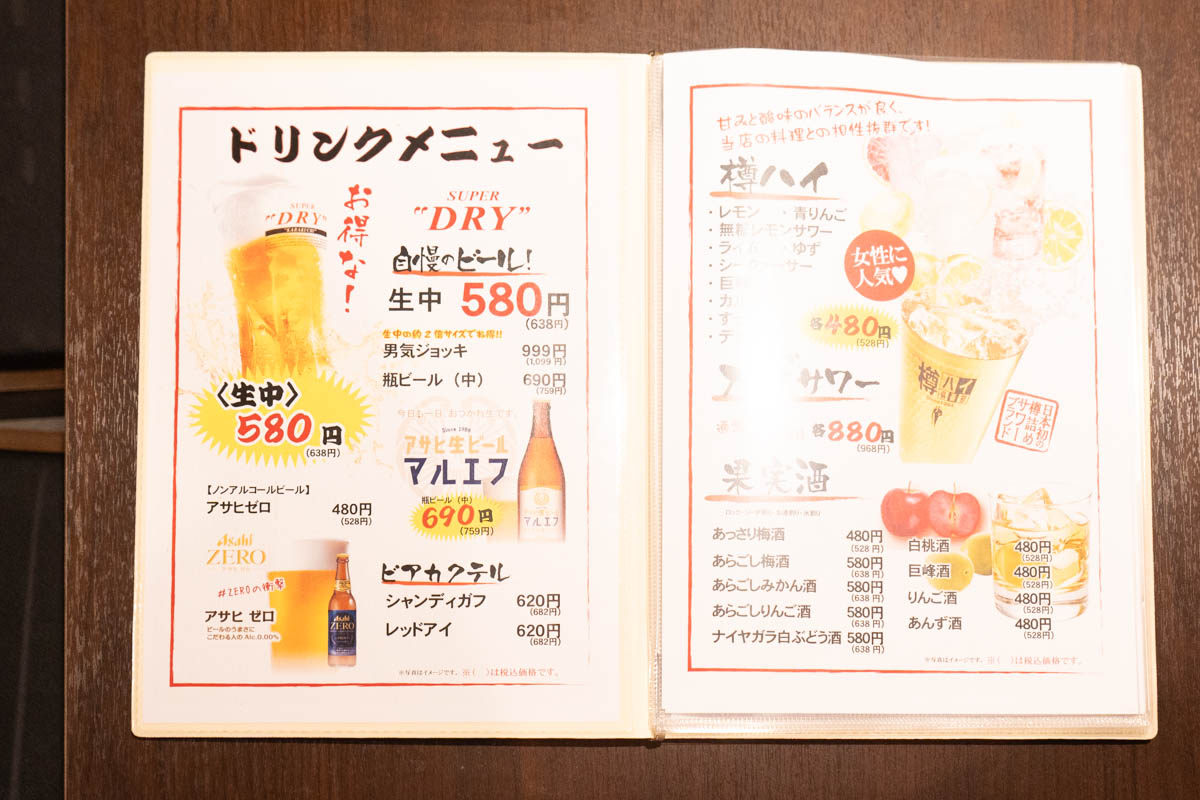 ドリンクメニュー
お得な!
SUPER
"DRY"
SUPER
"DRY"
自慢のビール!
生中 580円
(638円)
生中の約2倍サイズでお得!!
男気ジョッキ 999円
(1,099円)
瓶ビール(中) 690円
(759円)
〈生中〉
580円
(638円)
今日も一日、おつかれ生です。
Since 1986
アサヒ生ビール
マルエフ
瓶ビール(中)
690円
(759円)
マルエフ
【ノンアルコールビール】
アサヒゼロ 480円
(528円)
Asahi
ZERO
アサヒ ゼロ
#ZEROの衝撃
アサヒ ゼロ
ビールのうまさに
こだわる人の Alc.0.00%
Asahi
ZERO
ビアカクテル
シャンディガフ 620円
(682円)
レッドアイ 620円
(682円)
※写真はイメージです。※( )は税込価格です。
甘みと酸味のバランスが良く、
当店の料理との相性抜群です!
樽ハイ
・レモン ・青りんご
・無糖レモンサワー
・ライム ・ゆず
・シークヮーサー
・巨峰
女性に
人気♥
各480円
(528円)
樽ハイ
サワー
各880円
(968円)
日本初の
樽詰め
サワー
ブランド
果実酒
あっさり梅酒 480円
(528円)
あらごし梅酒 580円
(638円)
あらごしみかん酒 580円
(638円)
あらごしりんご酒 580円
(638円)
ナイヤガラ白ぶどう酒 580円
(638円)
白桃酒 480円
(528円)
巨峰酒 480円
(528円)
りんご酒 480円
(528円)
あんず酒 480円
(528円)
※写真はイメージです。※( )は税込価格です。